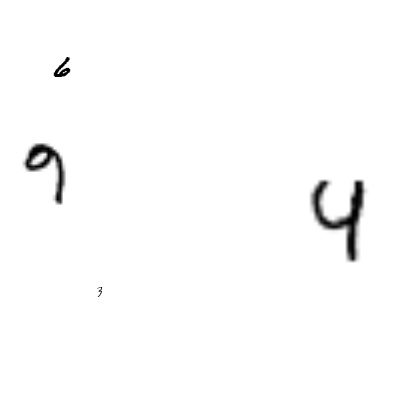 6
9
4
3